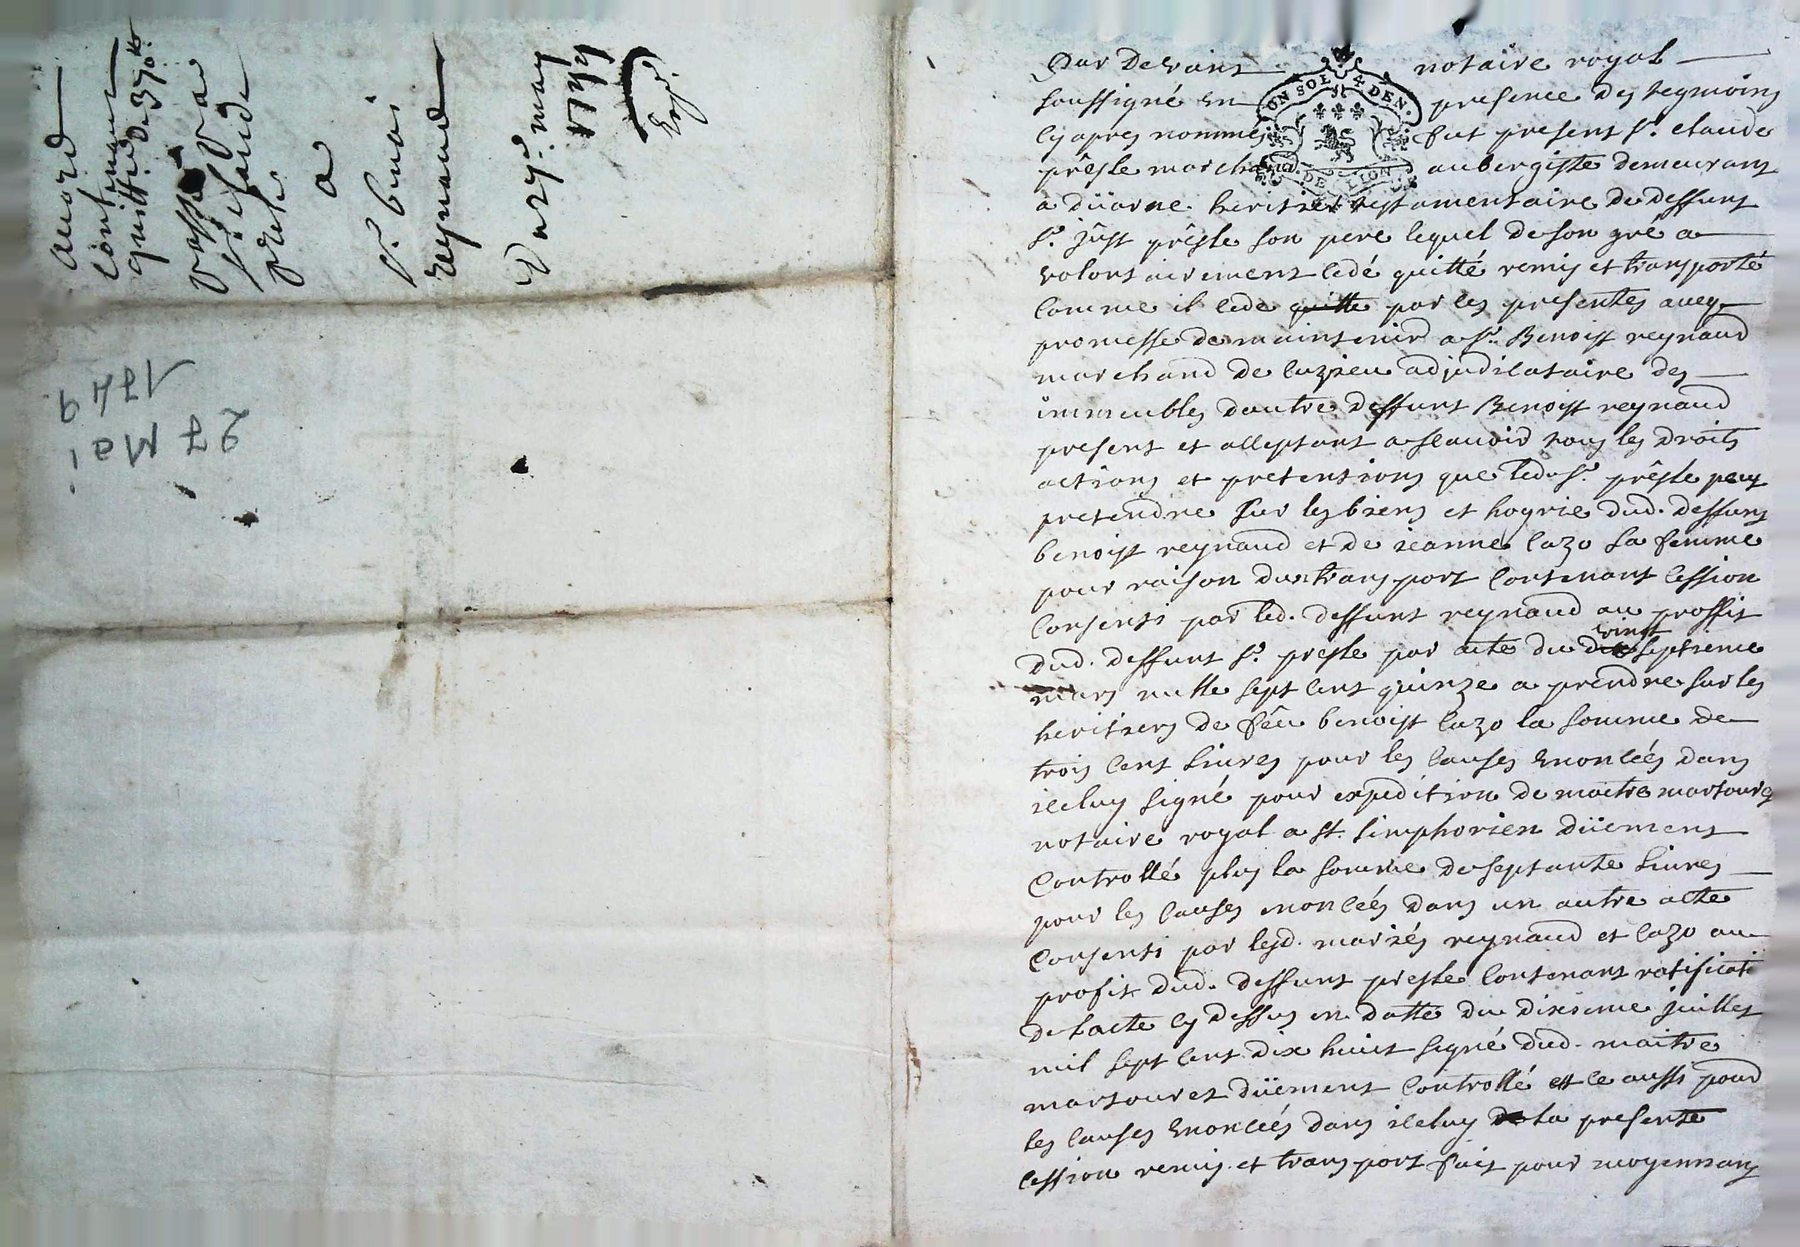 accord
contenant
quitte de 370 tt
passé par
Sr. claude
presle
a
Sr. benoi
reynaud
Du 27e. may
1749
Exped.
27 Mai
1749
Par devant notaire royal
soussigné en presence des tesmoins
cy apres nommes fut present Sr. claude
prêsle marchand aubergiste demeurant
a düerne heritier testamentaire de deffunt
Sr. jûst prêsle son pere lequel de son gré a
volontairement cedé quitté remis et transporté
comme il cede quitte par les presentes aveq
promesse de maintenir a Sr. Benoist reynaud
marchand de luzieu adjudicataire des
immeubles dautre deffunt Benoist reynaud
present et acceptant a scavoir tous les droits
actions et pretensions que led. Sr. prêsle peut
pretendre sur les biens et hoyrie dud. deffunt
benoist reynaud et de jeanne cazo sa femme
pour raison dun transport contenant cession
consenti par led. deffunt reynaud au proffit
dud. deffunt Sr. presle par acte du vingt septieme
mars mille sept cent quinze a prendre sur les
heritiers de fêu benoist cazo la somme de
trois cent livres pour les causes enoncées dans
iceluy signé pour expedition de maitre martouret
notaire royal a St. simphorien düement
Controllé plus la somme de septante livres
pour les causes enoncées dans un autre acte
Consenti par lesd. mariés reynaud et cazo au
profit dud. deffunt presle contenant ratificati
de lacte cy dessus en datte du dixieme juillet
mil sept cent dix huit signé dud. maitre
martouret düement controllé et ce aussi pour
les causes enoncées dans iceluy la presente
cession remis et transport fait pour moyennant
ON SOL 4 DEN.
DE LION